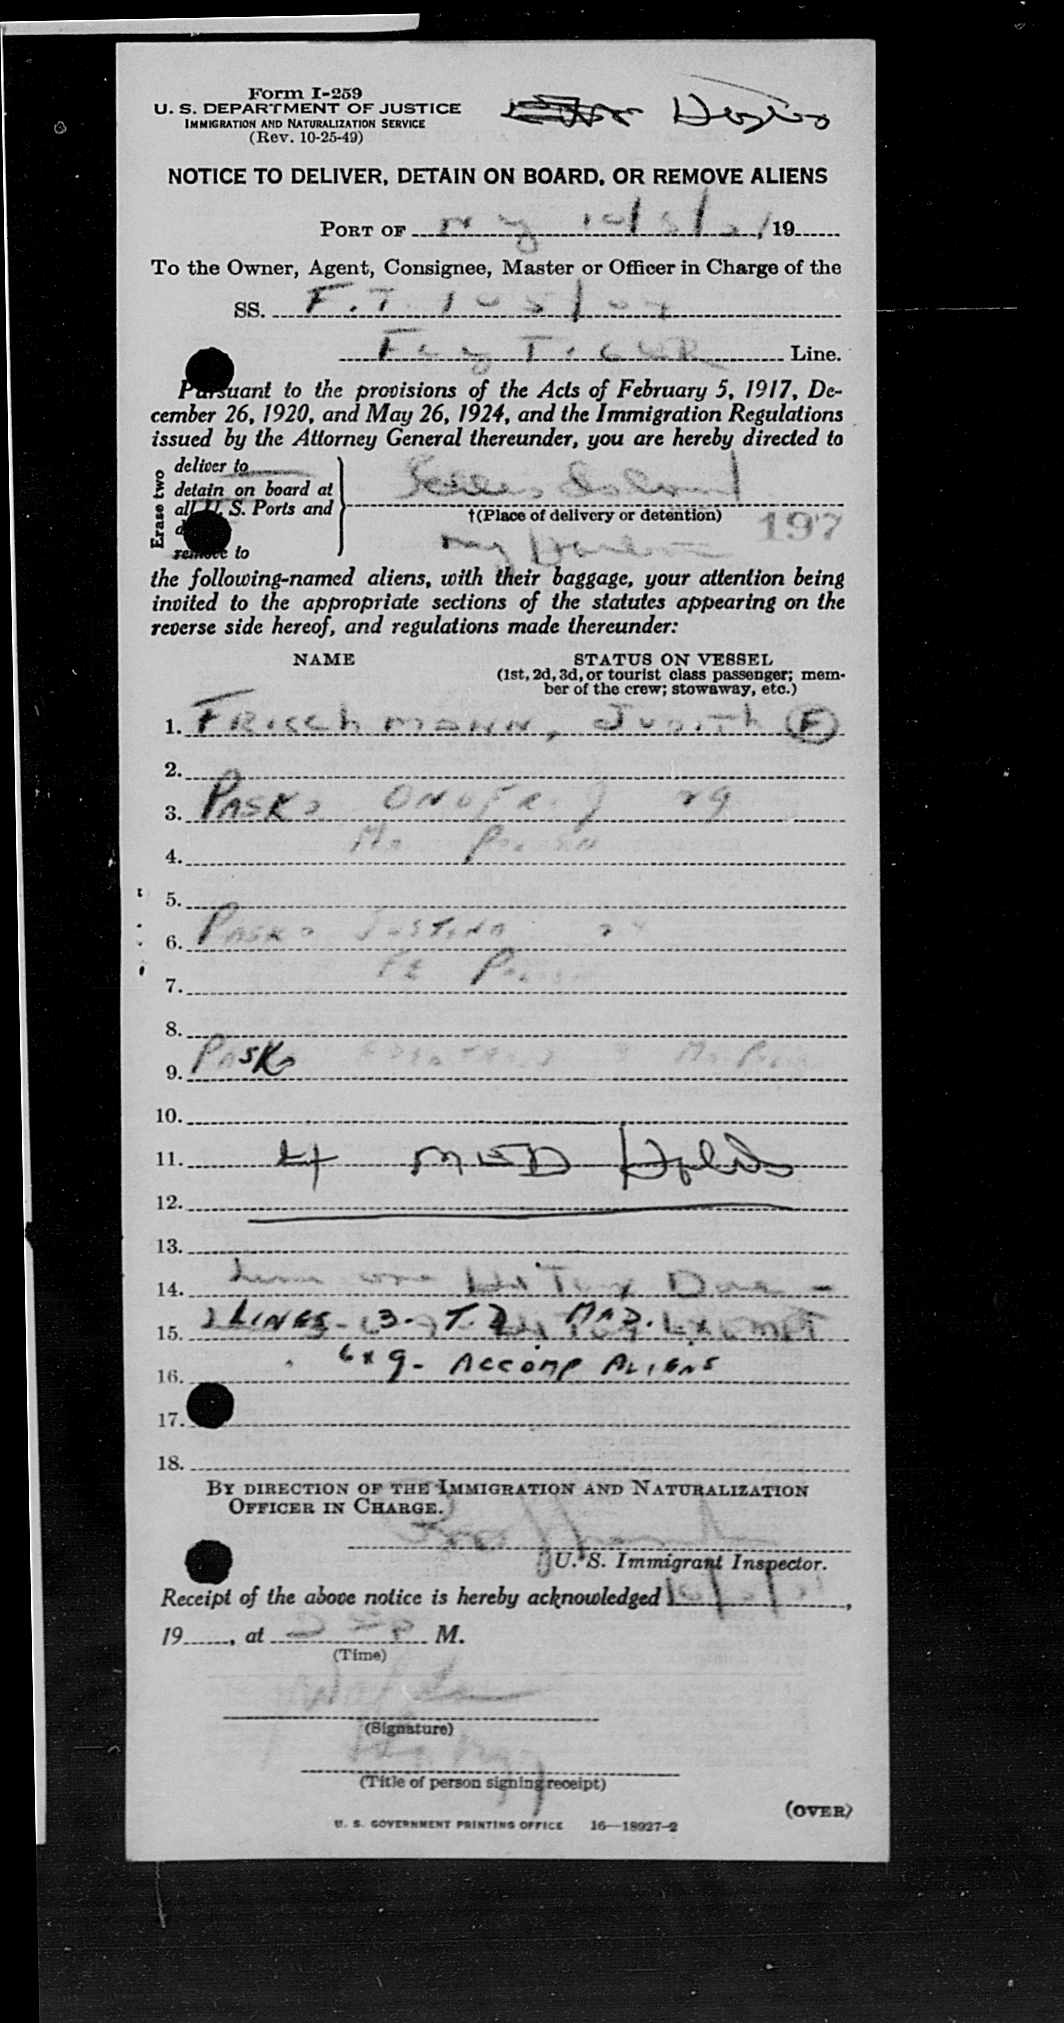 Form I-259
U. S. DEPARTMENT OF JUSTICE
IMMIGRATION AND NATURALIZATION SERVICE
(Rev. 10-25-49)
NOTICE TO DELIVER, DETAIN ON BOARD, OR REMOVE ALIENS
PORT OF N Y 19
To the Owner, Agent, Consignee, Master or Officer in Charge of the
SS. F.T.
TIGER Line.
Pursuant to the provisions of the Acts of February 5, 1917, De-
cember 26, 1920, and May 26, 1924, and the Immigration Regulations
issued by the Attorney General thereunder, you are hereby directed to
Erase two
deliver to
detain on board at
all U. S. Ports and
remove to
Island
†(Place of delivery or detention)
197
NY Harbor
the following-named aliens, with their baggage, your attention being
invited to the appropriate sections of the statutes appearing on the
reverse side hereof, and regulations made thereunder:
NAME
STATUS ON VESSEL
(1st, 2d, 3d, or tourist class passenger; mem-
ber of the crew; stowaway, etc.)
1. FRISCHMANN, JUDITH F
2.
3. PASKO ONUFRIJ 29
4. Ma
5.
6. PASKO JUSTINA
7. Fe
8.
9. PASKO
10.
11. MED Holds
12.
13.
14. Line one Head Tax Due -
15. LINES - 3. T.D. Head Tax Exempt
16. 6 x 9 - ACCOMP ALIENS
17.
18.
BY DIRECTION OF THE IMMIGRATION AND NATURALIZATION
OFFICER IN CHARGE.
U. S. Immigrant Inspector.
Receipt of the above notice is hereby acknowledged ,
19 , at M.
(Time)
(Signature)
(Title of person signing receipt)
(OVER)
U. S. GOVERNMENT PRINTING OFFICE 16—18927-2